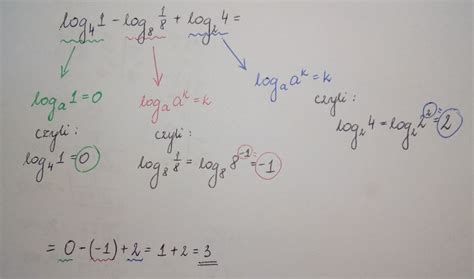 log₄1 - log₈ 1/8 + log₂4 =
logₐ1 = 0
czyli:
log₄1 = 0
logₐaᵏ = k
czyli:
log₈ 1/8 = log₈8⁻¹ = -1
logₐaᵏ = k
czyli:
log₂4 = log₂2² = 2
= 0 - (-1) + 2 = 1 + 2 = 3